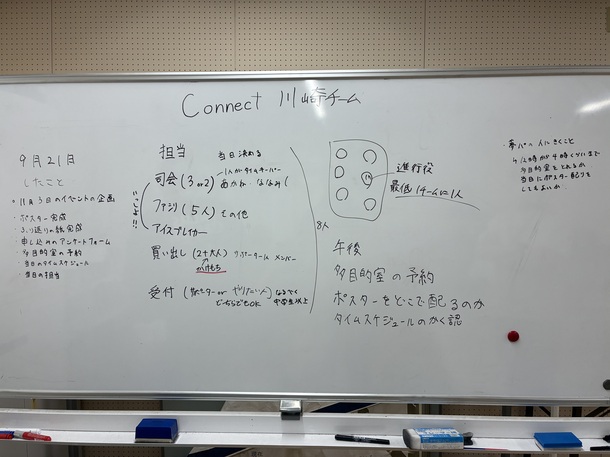 Connect 川崎チーム
9月21日
したこと
11月3日のイベントの企画
・ポスター完成
・ふり返りの紙完成
・申し込みのアンケートフォーム
・多目的室の予約
・当日のタイムスケジュール
・当日の担当
担当 当日決める
司会 (3 or 2) 1人がタイムキーパー
ファシリ (5人) その他
アイスブレイカー
いっしょ!!
買い出し (2+大人) サポーターに メンバー
かけもち
受付 ( or やりたい人) なるべく
どっちでもOK 中学生以上
進行役
最低1チームに1人
8人
午後
多目的室の予約
ポスターをどこで配るのか
タイムスケジュールのかく認
・夢パの人にきくこと
多目的室をとれるか
当日にポスター配りを
してもよいか